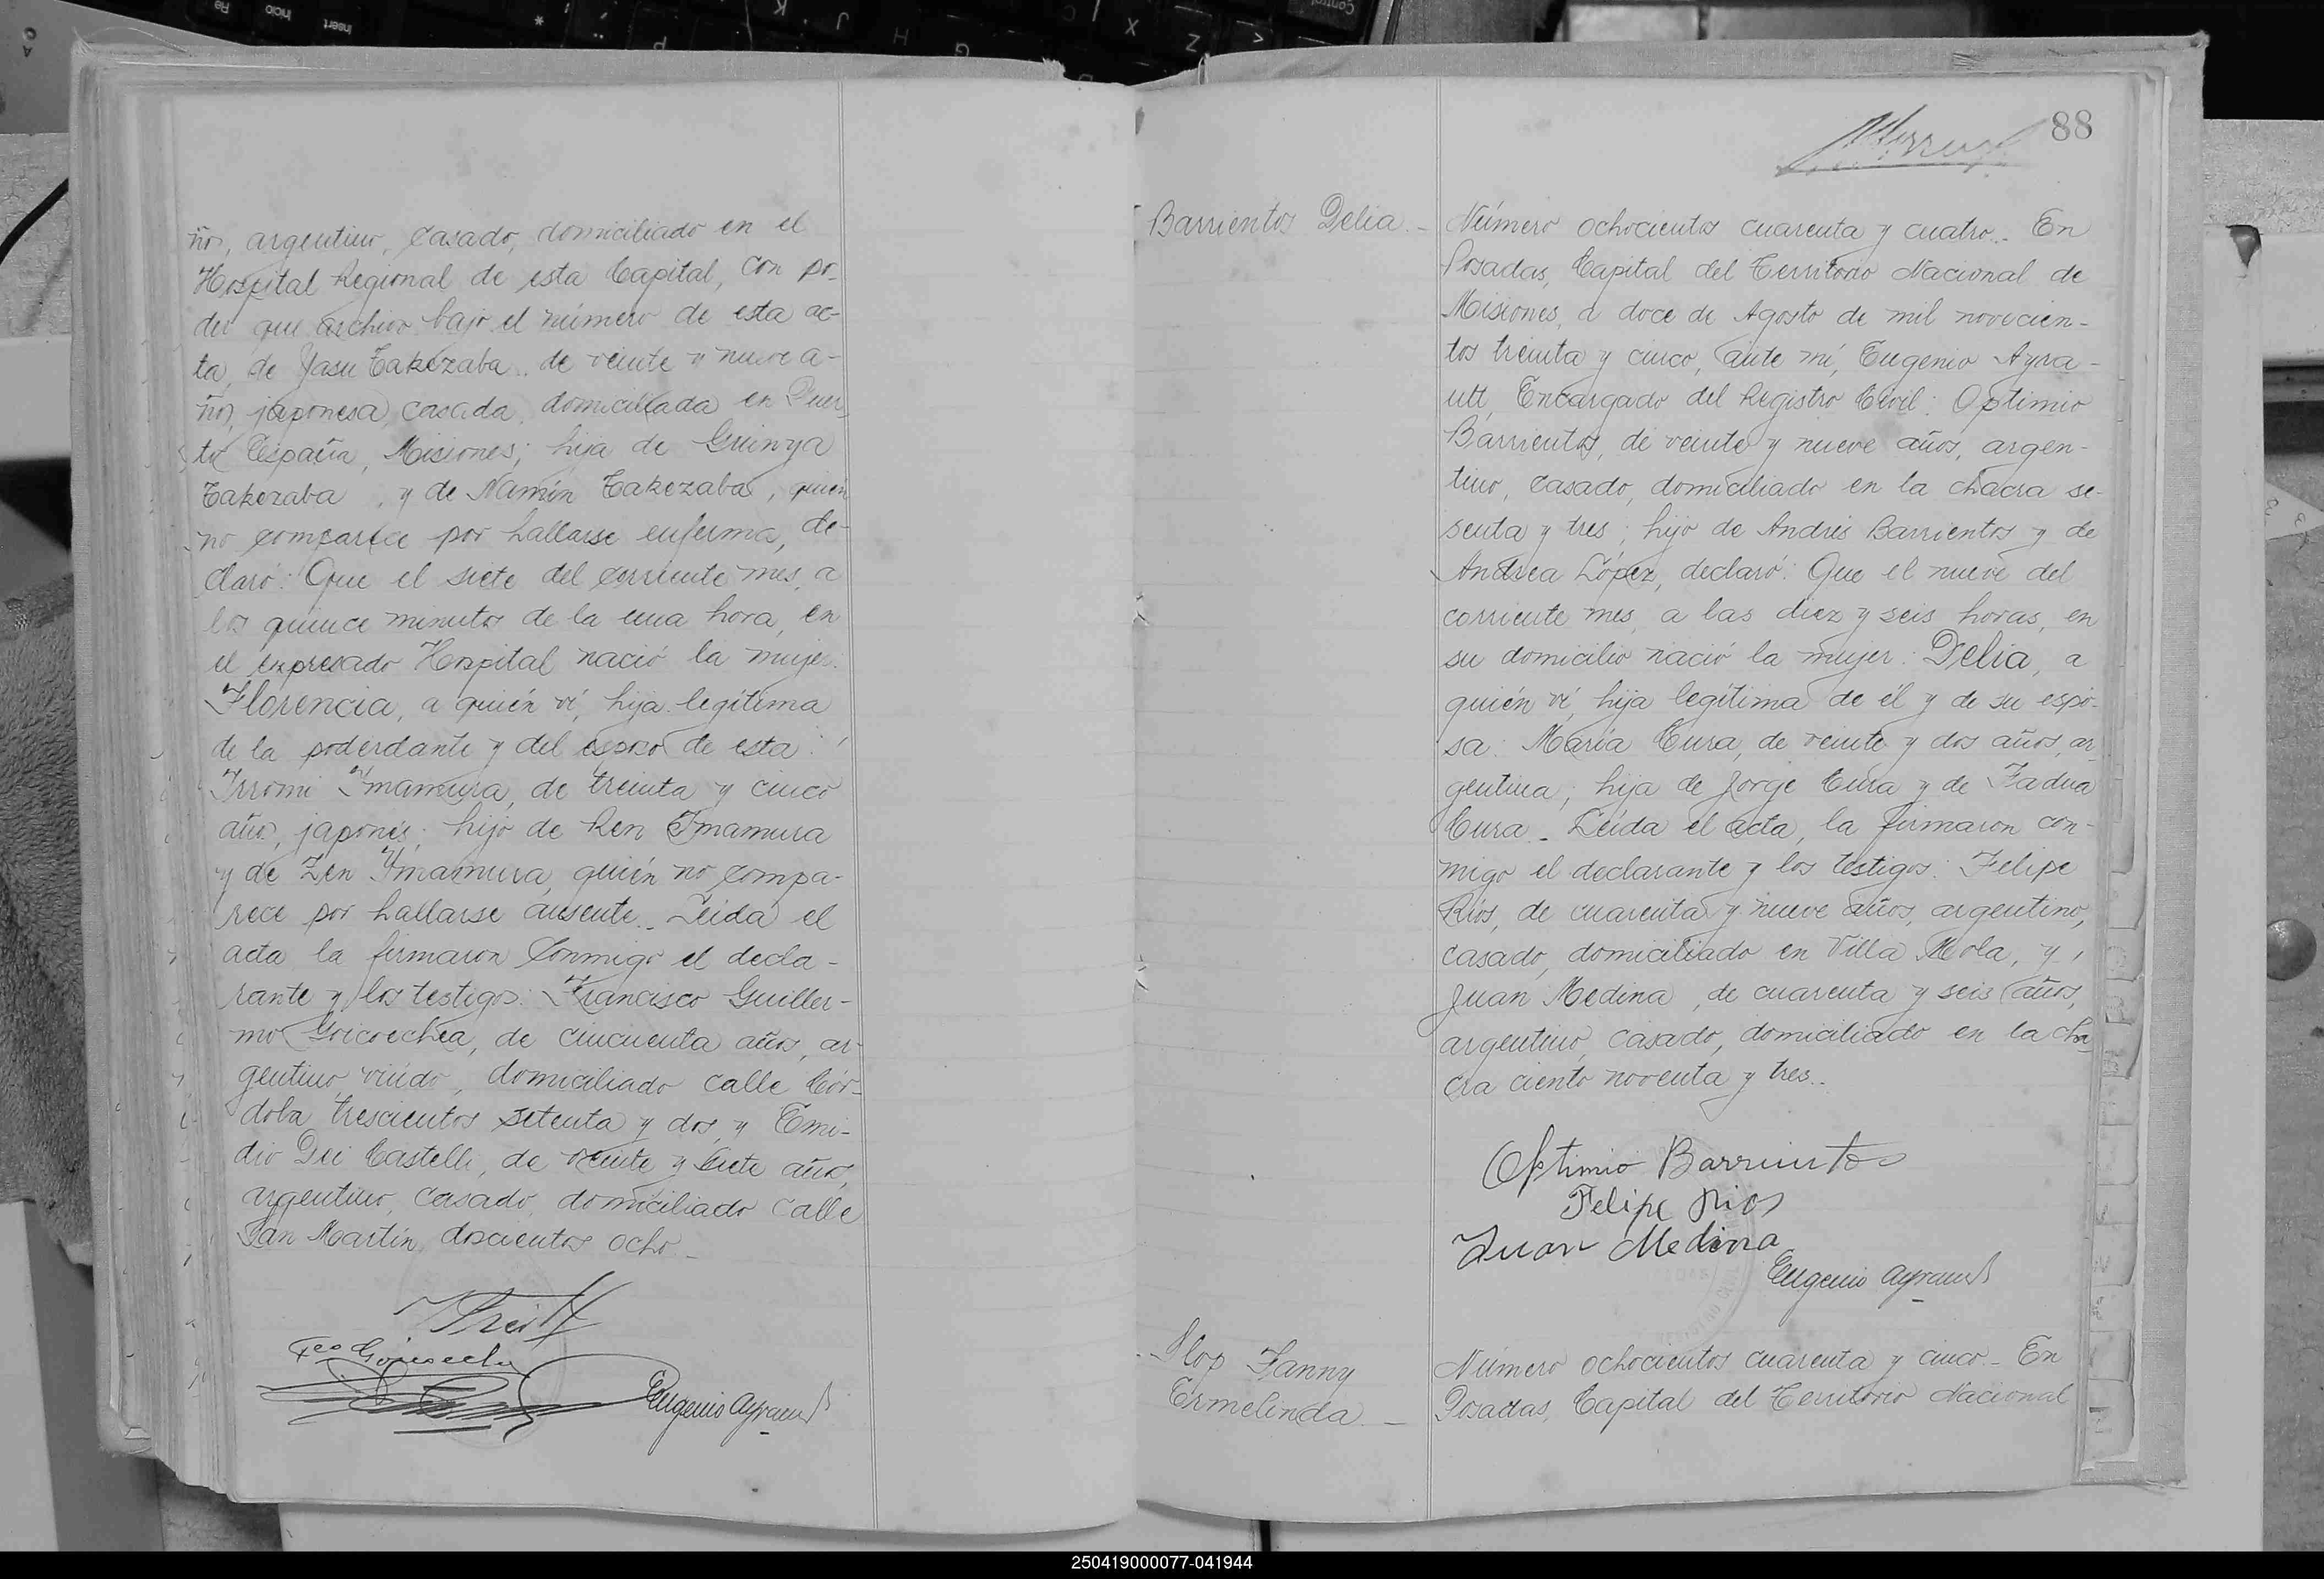 ños, argentino, casado, domiciliado en el
Hospital Regional de esta Capital, con po-
der que archivo bajo el número de esta ac-
ta, de Yasu Takezaba, de veinte y nueve a-
ños, japonesa, casada, domiciliada en Puer-
to España, Misiones; hija de Guinya
Takezaba, y de Namín Takezaba, quien
no comparece por hallarse enferma, de-
claró: Que el siete del corriente mes, a
los quince minutos de la una hora, en
el expresado Hospital nació la mujer:
Florencia, a quién ví, hija legítima
de la poderdante y del esposo de esta:
Irromi Imamura, de treinta y cinco
años, japonés; hijo de Ren Imamura
y de Zen Imamura, quién no compa-
rece por hallarse ausente. Leida el
acta la firmaron conmigo el decla-
rante y los testigos: Francisco Guiller-
mo Goicoechea, de cincuenta años, ar-
gentino, viudo, domiciliado calle Cór-
doba trescientos setenta y dos, y Emi-
dio Dei Castelli, de veinte y siete años,
argentino, casado, domiciliado calle
San Martín doscientos ocho.-
Fco Goicoechea
Eugenio Ayrault
88
Barrientos Delia.-
Número ochocientos cuarenta y cuatro.- En
Posadas, Capital del Territorio Nacional de
Misiones, a doce de Agosto de mil novecien-
tos treinta y cinco, ante mí, Eugenio Ayra-
ult, Encargado del Registro Civil: Optimio
Barrientos, de veinte y nueve años, argen-
tino, casado, domiciliado en la chacra se-
senta y tres; hijo de Andrés Barrientos y de
Andrea López, declaró: Que el nueve del
corriente mes, a las diez y seis horas, en
su domicilio nació la mujer: Delia, a
quién ví, hija legítima de él y de su espo-
sa: María Cura, de veinte y dos años, ar-
gentina; hija de Jorge Cura y de Fadua
Cura.- Leída el acta, la firmaron con-
migo el declarante y los testigos: Felipe
Ríos, de cuarenta y nueve años, argentino,
casado, domiciliado en Villa Mola, y,
Juan Medina, de cuarenta y seis años,
argentino, casado, domiciliado en la cha-
cra ciento noventa y tres.-
Optimio Barrientos
Felipe Rios
Juan Medina
Eugenio Ayrault
Slop Fanny
Ermelinda.-
Número ochocientos cuarenta y cinco.- En
Posadas, Capital del Territorio Nacional
250419000077-041944